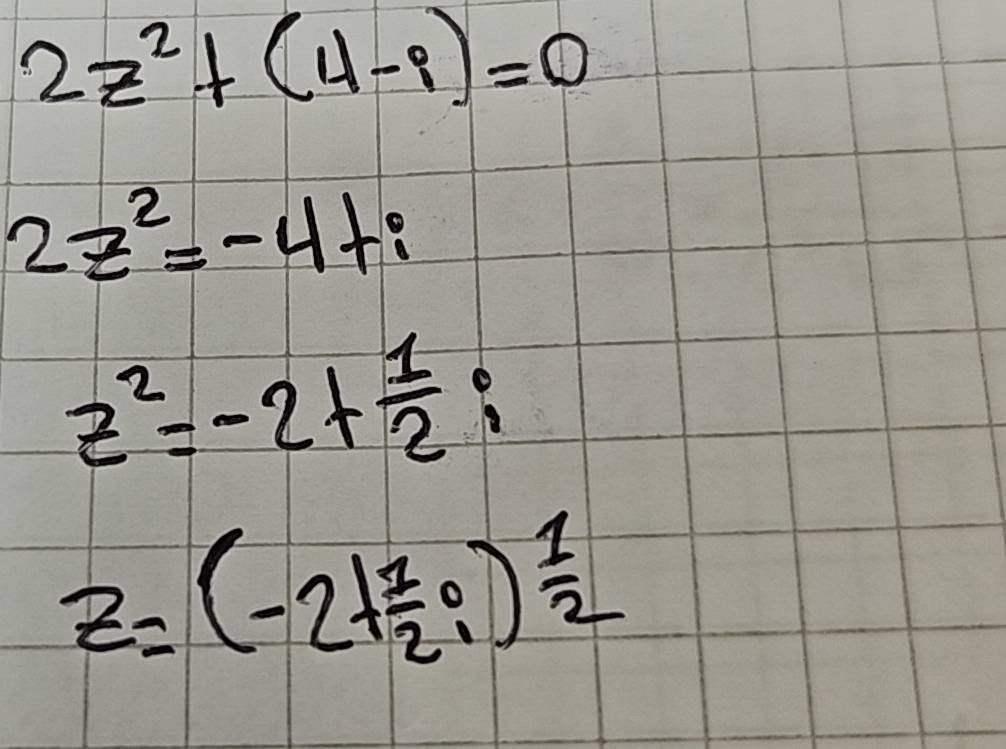 2z² + (4-i) = 0
2z² = -4+i
z² = -2+\frac{1}{2}i
z = (-2+\frac{1}{2}i)^{\frac{1}{2}}